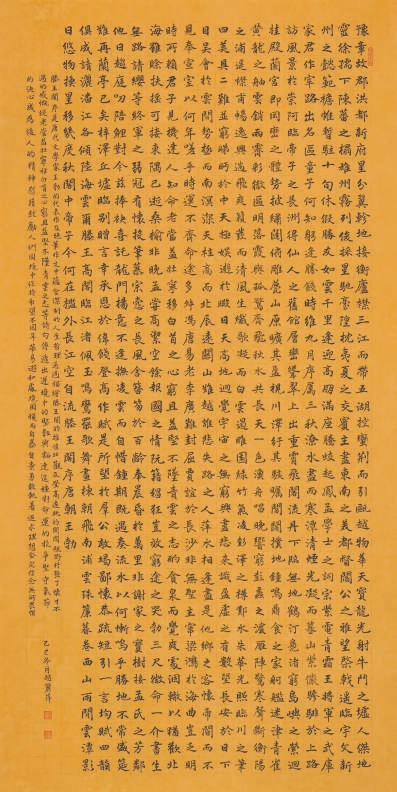 豫章故郡洪都新府星分翼軫地接衡廬襟三江而帶五湖控蠻荊而引甌越物華天寶龍光射牛斗之墟人傑地
靈徐孺下陳蕃之榻雄州霧列俊採星馳臺隍枕夷夏之交賓主盡東南之美都督閻公之雅望棨戟遙臨宇文新
州之懿範襜帷暫駐十旬休假勝友如雲千里逢迎高朋滿座騰蛟起鳳孟學士之詞宗紫電青霜王將軍之武庫
家君作宰路出名區童子何知躬逢勝餞時維九月序屬三秋潦水盡而寒潭清煙光凝而暮山紫儼驂騑於上路
訪風景於崇阿臨帝子之長洲得仙人之舊館層巒聳翠上出重霄飛閣流丹下臨無地鶴汀鳧渚窮島嶼之縈迴
桂殿蘭宮即岡巒之體勢披繡闥俯雕甍山原曠其盈視川澤紆其駭矚閭閻撲地鐘鳴鼎食之家舸艦迷津青雀
黃龍之舳雲銷雨霽彩徹區明落霞與孤鶩齊飛秋水共長天一色漁舟唱晚響窮彭蠡之濱雁陣驚寒聲斷衡陽
之浦遙襟甫暢逸興遄飛爽籟發而清風生纖歌凝而白雲遏睢園綠竹氣凌彭澤之樽鄴水朱華光照臨川之筆
四美具二難並窮睇眄於中天極娛遊於暇日天高地迥覺宇宙之無窮興盡悲來識盈虛之有數望長安於日下
目吳會於雲間勢極而南溟深天柱高而北辰遠關山難越誰悲失路之人萍水相逢盡是他鄉之客懷帝閽而不
見奉宣室以何年嗟乎時運不齊命途多舛馮唐易老李廣難封屈賈誼於長沙非無聖主竄梁鴻於海曲豈乏明
時所賴君子見機達人知命老當益壯寧移白首之心窮且益堅不墜青雲之志酌貪泉而覺爽處涸轍以猶歡北
海雖賒扶搖可接東隅已逝桑榆非晚孟嘗高潔空餘報國之情阮籍猖狂豈效窮途之哭勃三尺微命一介書生
無路請纓等終軍之弱冠有懷投筆慕宗愨之長風舍簪笏於百齡奉晨昏於萬里非謝家之寶樹接孟氏之芳鄰
他日趨庭叨陪鯉對今茲捧袂喜託龍門楊意不逢撫凌雲而自惜鐘期既遇奏流水以何慚嗚乎勝地不常盛筵
難再蘭亭已矣梓澤丘墟臨別贈言幸承恩於偉餞登高作賦是所望於群公敢竭鄙懷恭疏短引一言均賦四韻
俱成請灑潘江各傾陸海雲爾滕王高閣臨江渚佩玉鳴鸞罷歌舞畫棟朝飛南浦雲珠簾暮卷西山雨閒雲潭影
日悠悠物換星移幾度秋閣中帝子今何在檻外長江空自流滕王閣序唐朝王勃
滕王閣序是唐代文學家王勃的代表作
的決心成為後人的精神
乙巳冬月趙